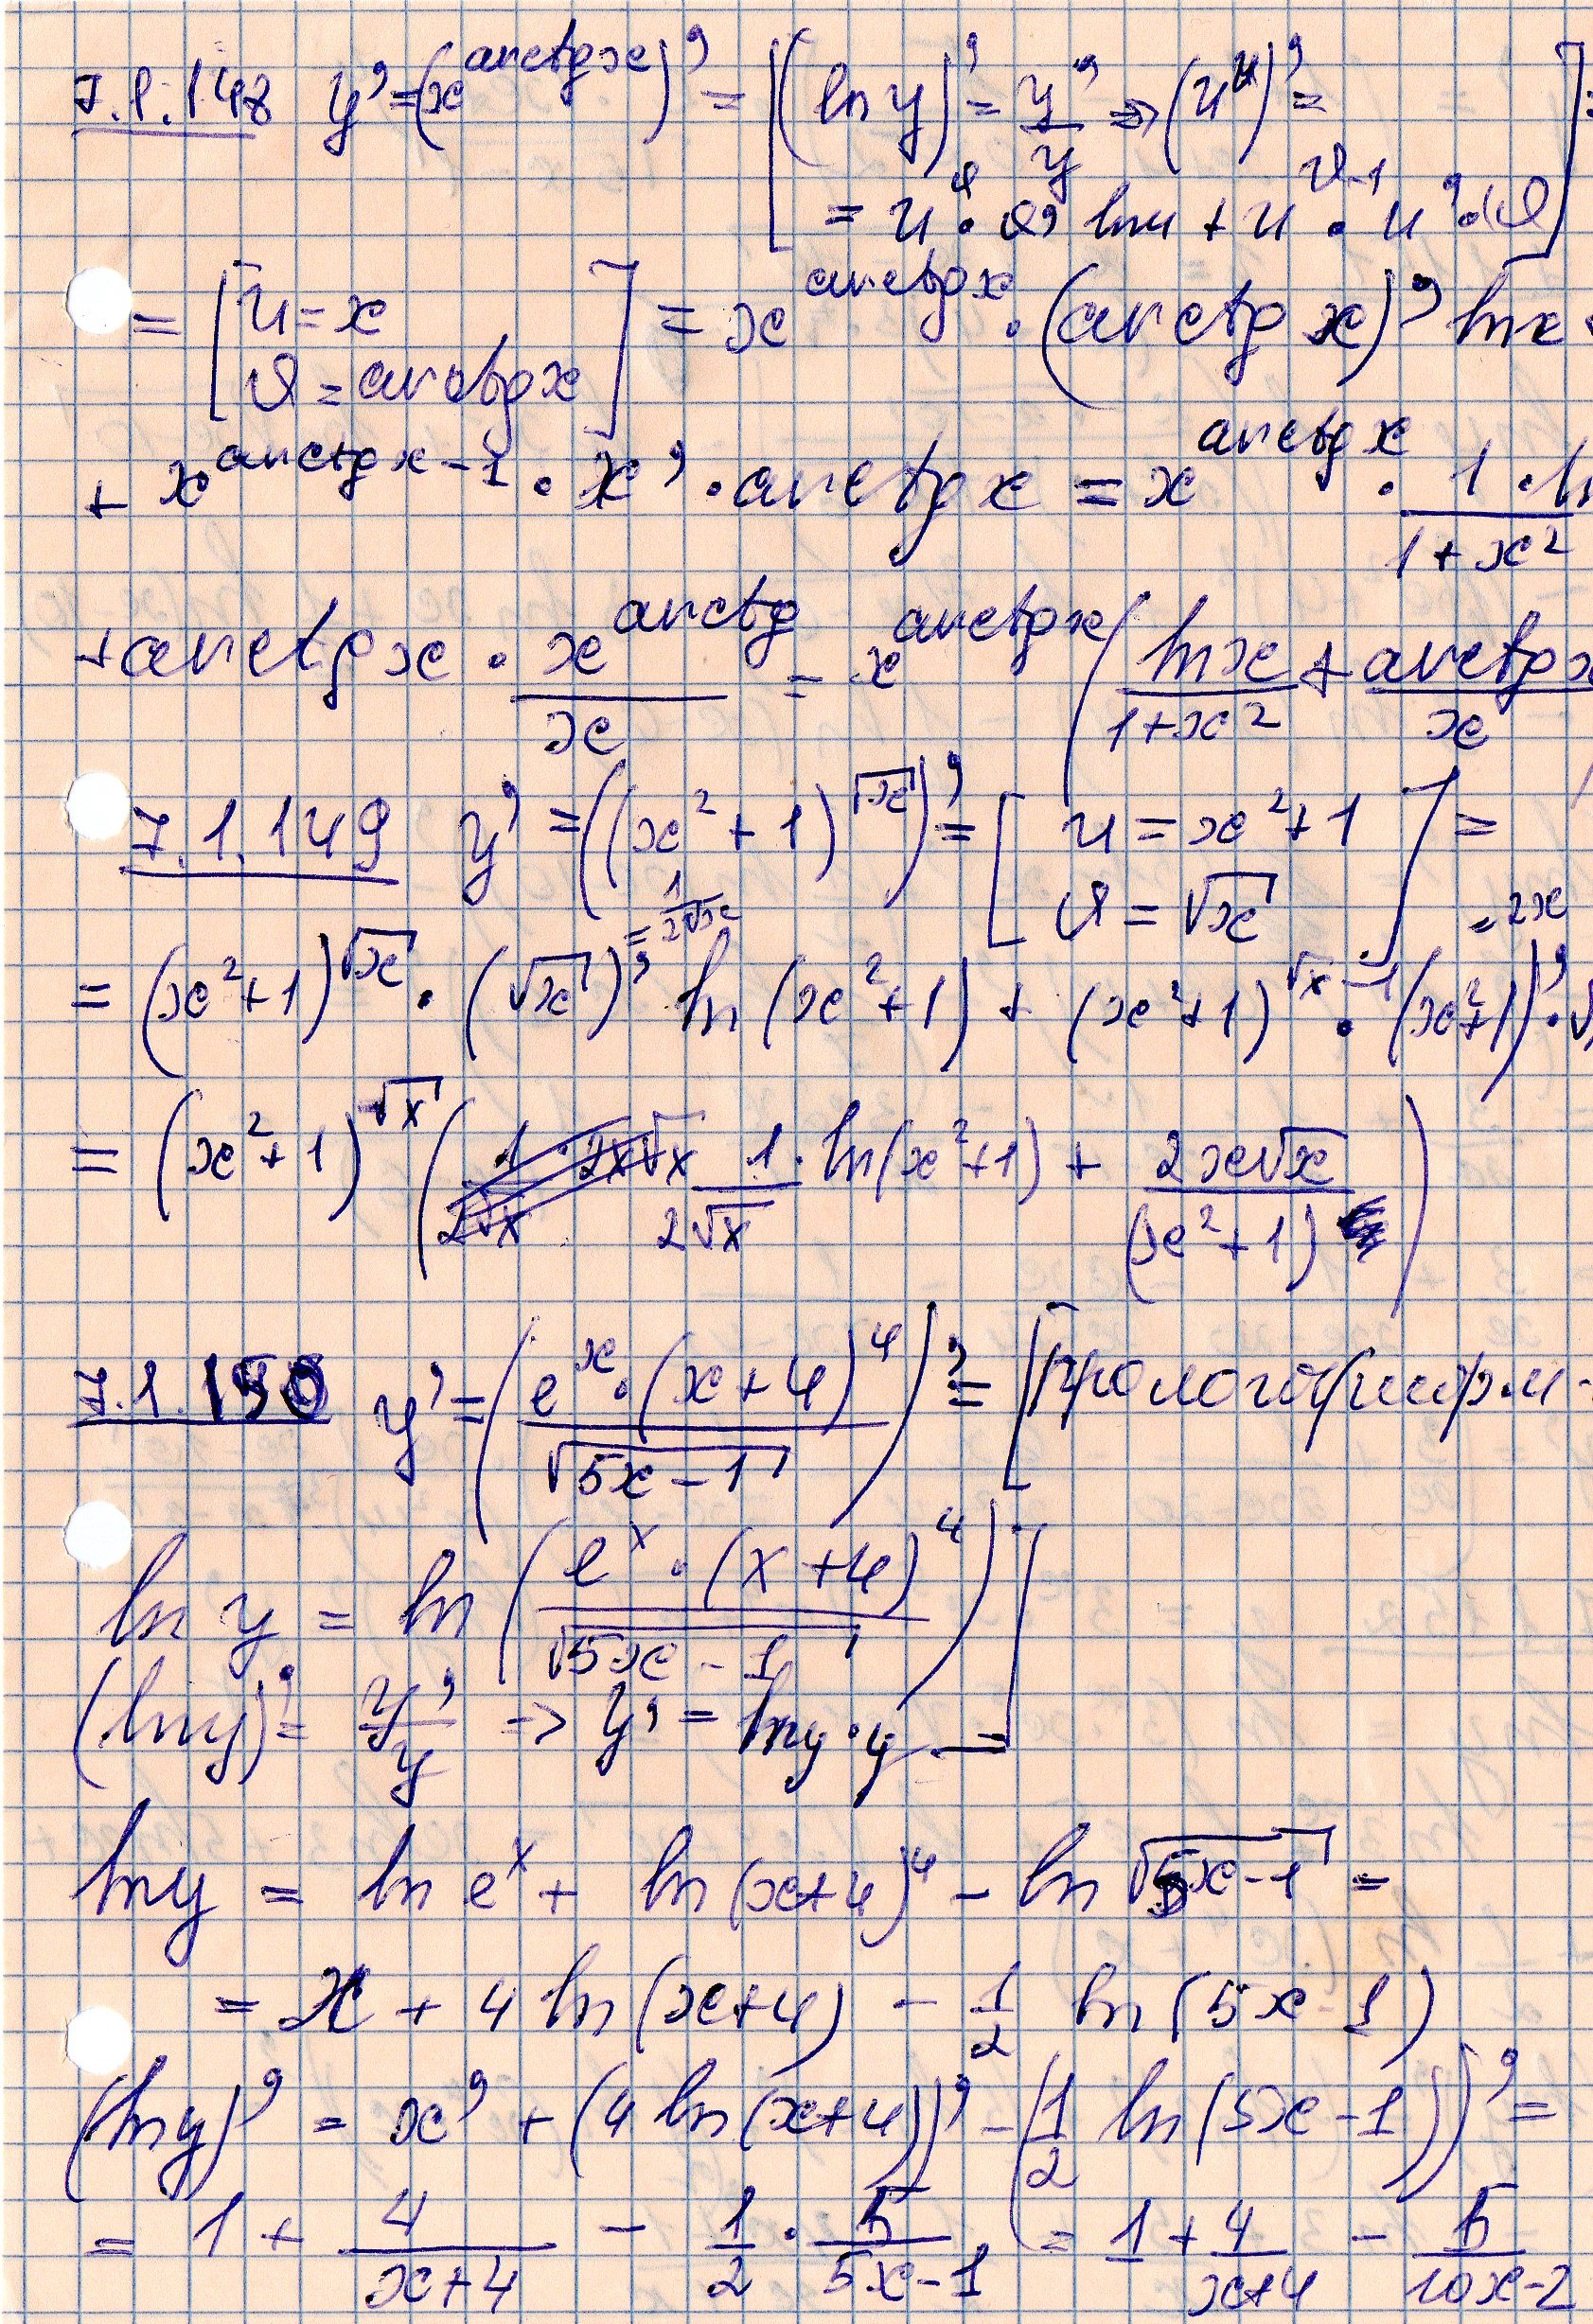 7.1.148 y' = (x^arctg x)' = [(ln y)' = y'/y => (u^v)' =
= u^v · v' ln u + u^(v-1) · u' · v] =
= [u = x
v = arctg x] = x^arctg x · (arctg x)' ln x +
+ x^(arctg x - 1) · x' · arctg x = x^arctg x · 1/(1+x²) · ln
+ arctg x · x^arctg / x = x^arctg x (ln x/(1+x²) + arctg x/x
7.1.149 y' = ((x²+1)^√x)' = [u = x²+1
v = √x] =
= 1/(2√x)
= 2x
= (x²+1)^√x · (√x)' ln(x²+1) + (x²+1)^(√x - 1) · (x²+1)' · √
= (x²+1)^√x (1/(2√x) · ln(x²+1) + 2x√x/(x²+1))
7.1.150 y' = (e^x · (x+4)^4 / √(5x-1))' = [Прологарифм-
ln y = ln(e^x · (x+4)^4 / √(5x-1))
(ln y)' = y'/y -> y' = ln y · y =]
ln y = ln e^x + ln(x+4)^4 - ln √(5x-1) =
= x + 4 ln(x+4) - 1/2 ln(5x-1)
(ln y)' = x' + (4 ln(x+4))' - (1/2 ln(5x-1))' =
= 1 + 4/(x+4) - 1/2 · 5/(5x-1) = 1 + 4/(x+4) - 5/(10x-2)